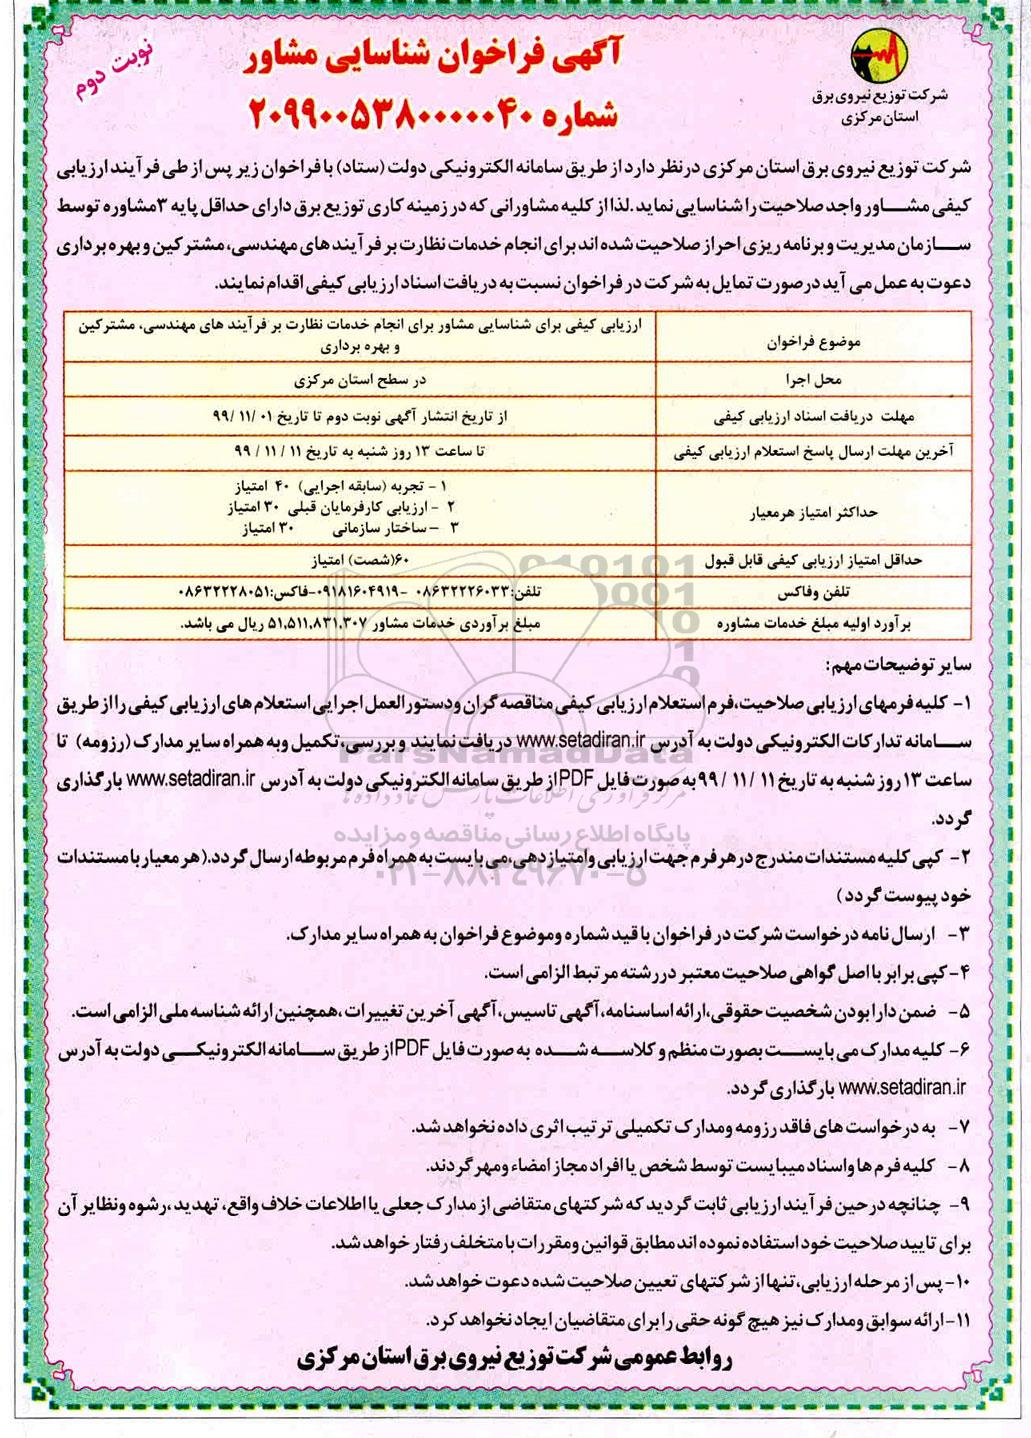 آگهی فراخوان شناسایی مشاور
شماره ۲۰۹۹۰۰۵۳۸۰۰۰۰۰۴۰
نوبت دوم
شرکت توزیع نیروی برق
استان مرکزی
شرکت توزیع نیروی برق استان مرکزی درنظر دارد از طریق سامانه الکترونیکی دولت (ستاد) با فراخوان زیر پس از طی فرآیند ارزیابی
کیفی مشاور واجد صلاحیت را شناسایی نماید.لذا از کلیه مشاورانی که در زمینه کاری توزیع برق دارای حداقل پایه ۳مشاوره توسط
سازمان مدیریت و برنامه ریزی احراز صلاحیت شده اند برای انجام خدمات نظارت بر فرآیندهای مهندسی، مشترکین و بهره برداری
دعوت به عمل می آید درصورت تمایل به شرکت در فراخوان نسبت به دریافت اسناد ارزیابی کیفی اقدام نمایند.
موضوع فراخوان
ارزیابی کیفی برای شناسایی مشاور برای انجام خدمات نظارت بر فرآیند های مهندسی، مشترکین
و بهره برداری
محل اجرا
در سطح استان مرکزی
مهلت دریافت اسناد ارزیابی کیفی
از تاریخ انتشار آگهی نوبت دوم تا تاریخ ۰۱ /۱۱ /۹۹
آخرین مهلت ارسال پاسخ استعلام ارزیابی کیفی
تا ساعت ۱۳ روز شنبه به تاریخ ۱۱ / ۱۱ / ۹۹
حداکثر امتیاز هرمعیار
۱ - تجربه (سابقه اجرایی) ۴۰ امتیاز
۲ - ارزیابی کارفرمایان قبلی ۳۰ امتیاز
۳ - ساختار سازمانی ۳۰ امتیاز
حداقل امتیاز ارزیابی کیفی قابل قبول
۶۰(شصت) امتیاز
تلفن وفاکس
تلفن:۰۸۶۳۲۲۲۶۰۳۳ -۰۹۱۸۱۶۰۴۹۱۹-فاکس:۰۸۶۳۲۲۲۸۰۵۱
برآورد اولیه مبلغ خدمات مشاوره
مبلغ برآوردی خدمات مشاور ۵۱,۵۱۱,۸۳۱,۳۰۷ ریال می باشد.
سایر توضیحات مهم:
۱- کلیه فرمهای ارزیابی صلاحیت،فرم استعلام ارزیابی کیفی مناقصه گران ودستورالعمل اجرایی استعلام های ارزیابی کیفی را از طریق
سامانه تدارکات الکترونیکی دولت به آدرس www.setadiran.ir دریافت نمایند و بررسی،تکمیل وبه همراه سایر مدارک (رزومه) تا
ساعت ۱۳ روز شنبه به تاریخ ۱۱ / ۱۱ /۹۹ به صورت فایل PDF از طریق سامانه الکترونیکی دولت به آدرس www.setadiran.ir بارگذاری
گردد.
۲- کپی کلیه مستندات مندرج در هر فرم جهت ارزیابی وامتیازدهی،می بایست به همراه فرم مربوطه ارسال گردد.(هر معیار با مستندات
خود پیوست گردد )
۳- ارسال نامه درخواست شرکت در فراخوان با قید شماره وموضوع فراخوان به همراه سایر مدارک.
۴-کپی برابر با اصل گواهی صلاحیت معتبر در رشته مرتبط الزامی است.
۵- ضمن دارا بودن شخصیت حقوقی،ارائه اساسنامه، آگهی تاسیس، آگهی آخرین تغییرات ،همچنین ارائه شناسه ملی الزامی است.
۶- کلیه مدارک می بایست بصورت منظم و کلاسه شده به صورت فایل PDF از طریق سامانه الکترونیکی دولت به آدرس
www.setadiran.ir بارگذاری گردد.
۷- به درخواست های فاقد رزومه ومدارک تکمیلی ترتیب اثری داده نخواهد شد.
۸- کلیه فرم ها واسناد میبایست توسط شخص یا افراد مجاز امضاء ومهر گردند.
۹- چنانچه در حین فرآیند ارزیابی ثابت گردید که شرکتهای متقاضی از مدارک جعلی یا اطلاعات خلاف واقع، تهدید ،رشوه ونظایر آن
برای تایید صلاحیت خود استفاده نموده اند مطابق قوانین ومقررات با متخلف رفتار خواهد شد.
۱۰-پس از مرحله ارزیابی،تنها از شرکتهای تعیین صلاحیت شده دعوت خواهد شد.
۱۱-ارائه سوابق ومدارک نیز هیچ گونه حقی را برای متقاضیان ایجاد نخواهد کرد.
روابط عمومی شرکت توزیع نیروی برق استان مرکزی
ParsNamadData
پایگاه اطلاع رسانی مناقصه و مزایده
۰۲۱-۸۸۳۴۹۶۷۰-۵